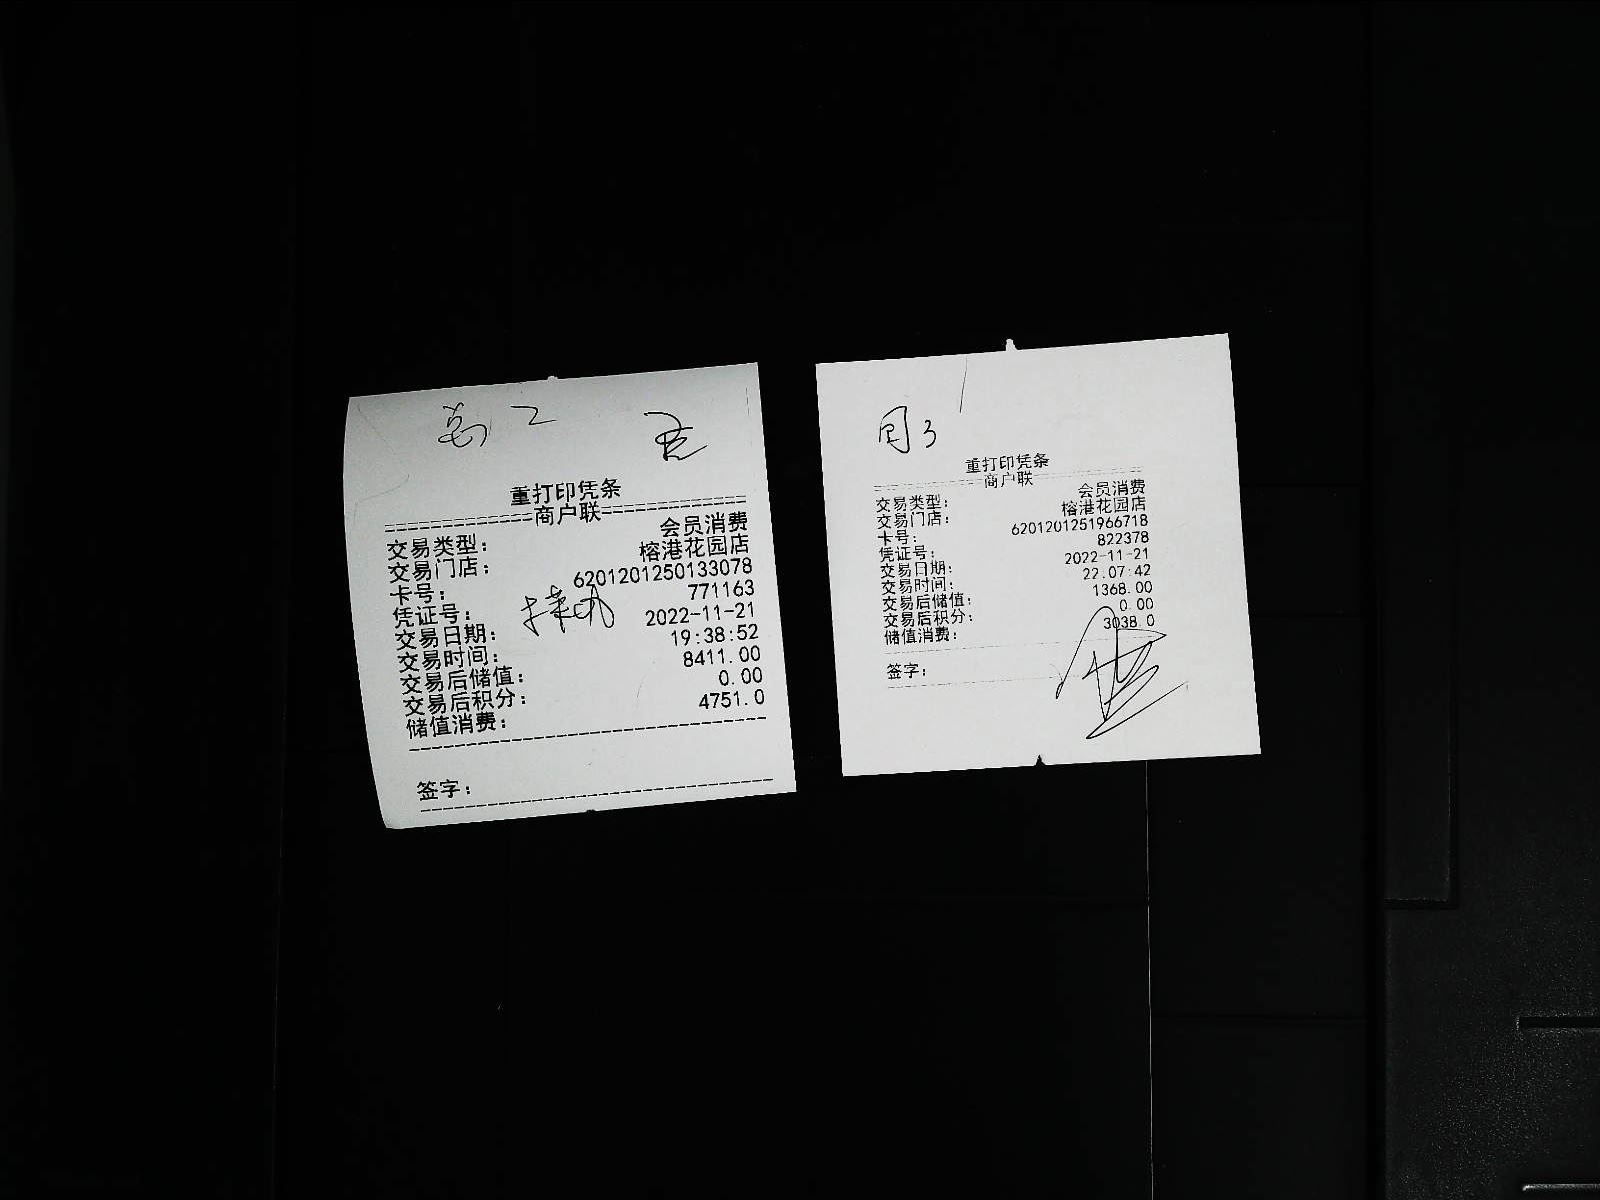 重打印凭条
==========商户联==========
交易类型： 会员消费
交易门店： 榕港花园店
卡号： 6201201250133078
凭证号： 771163
交易日期： 2022-11-21
交易时间： 19:38:52
交易后储值： 8411.00
交易后积分： 0.00
储值消费： 4751.0
签字：
重打印凭条
==========商户联==========
交易类型： 会员消费
交易门店： 榕港花园店
卡号： 6201201251966718
凭证号： 822378
交易日期： 2022-11-21
交易时间： 22:07:42
交易后储值： 1368.00
交易后积分： 0.00
储值消费： 3038.0
签字：